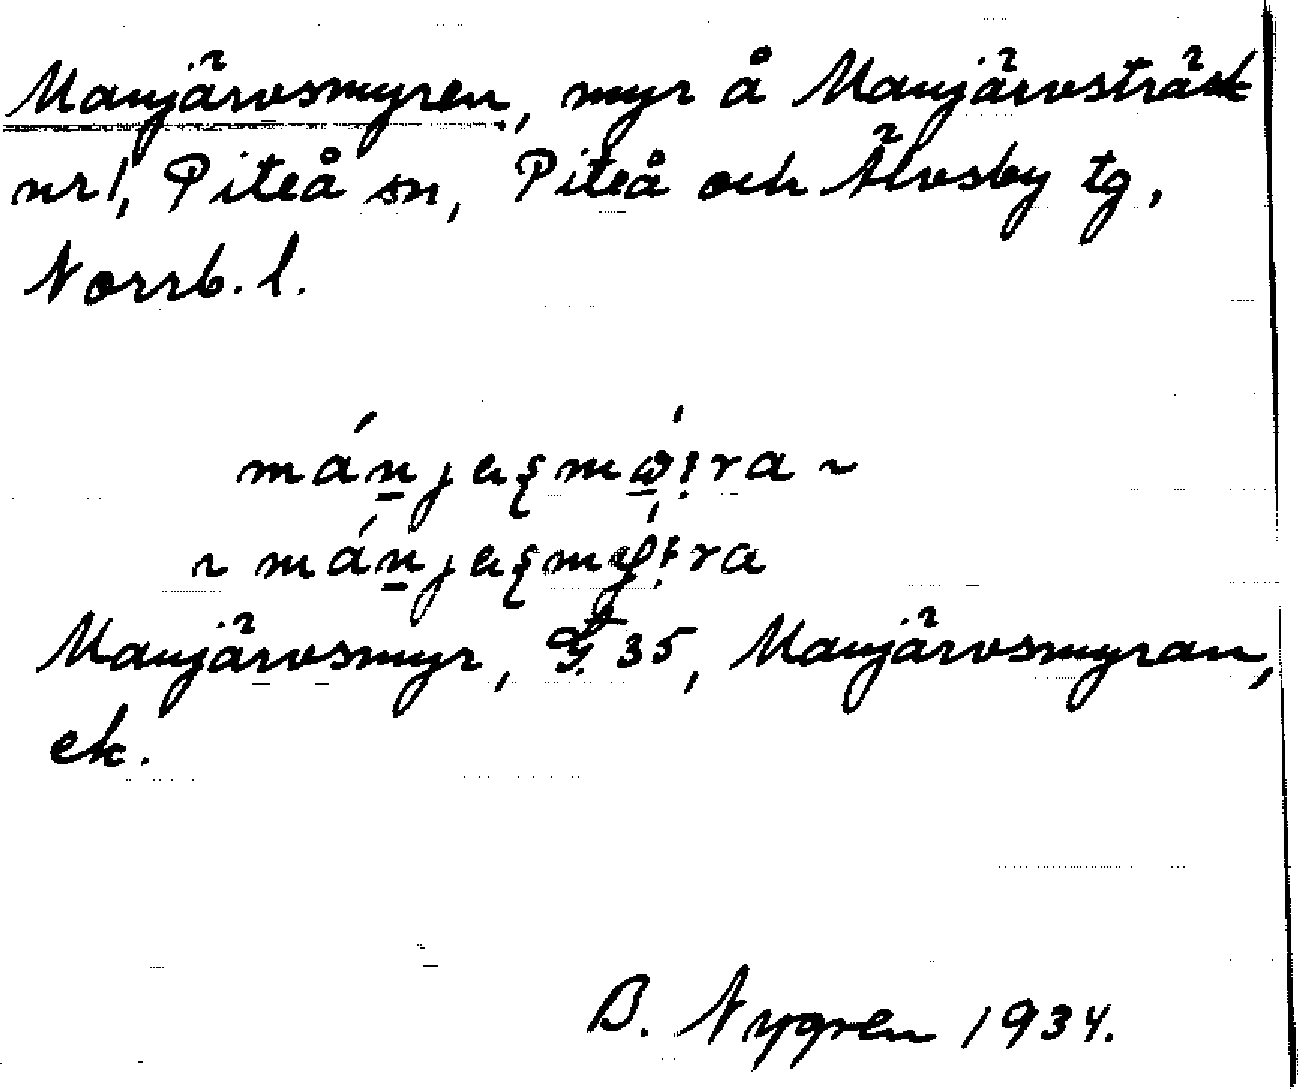 Manjärvsmyren, myr å Manjärvsträsk
nr 1, Piteå sn, Piteå och Älvsby tg,
Norrb. l.
~
~
Manjärvsmyr, 35, Manjärvsmyran,
ek.
B. Nygren 1934.